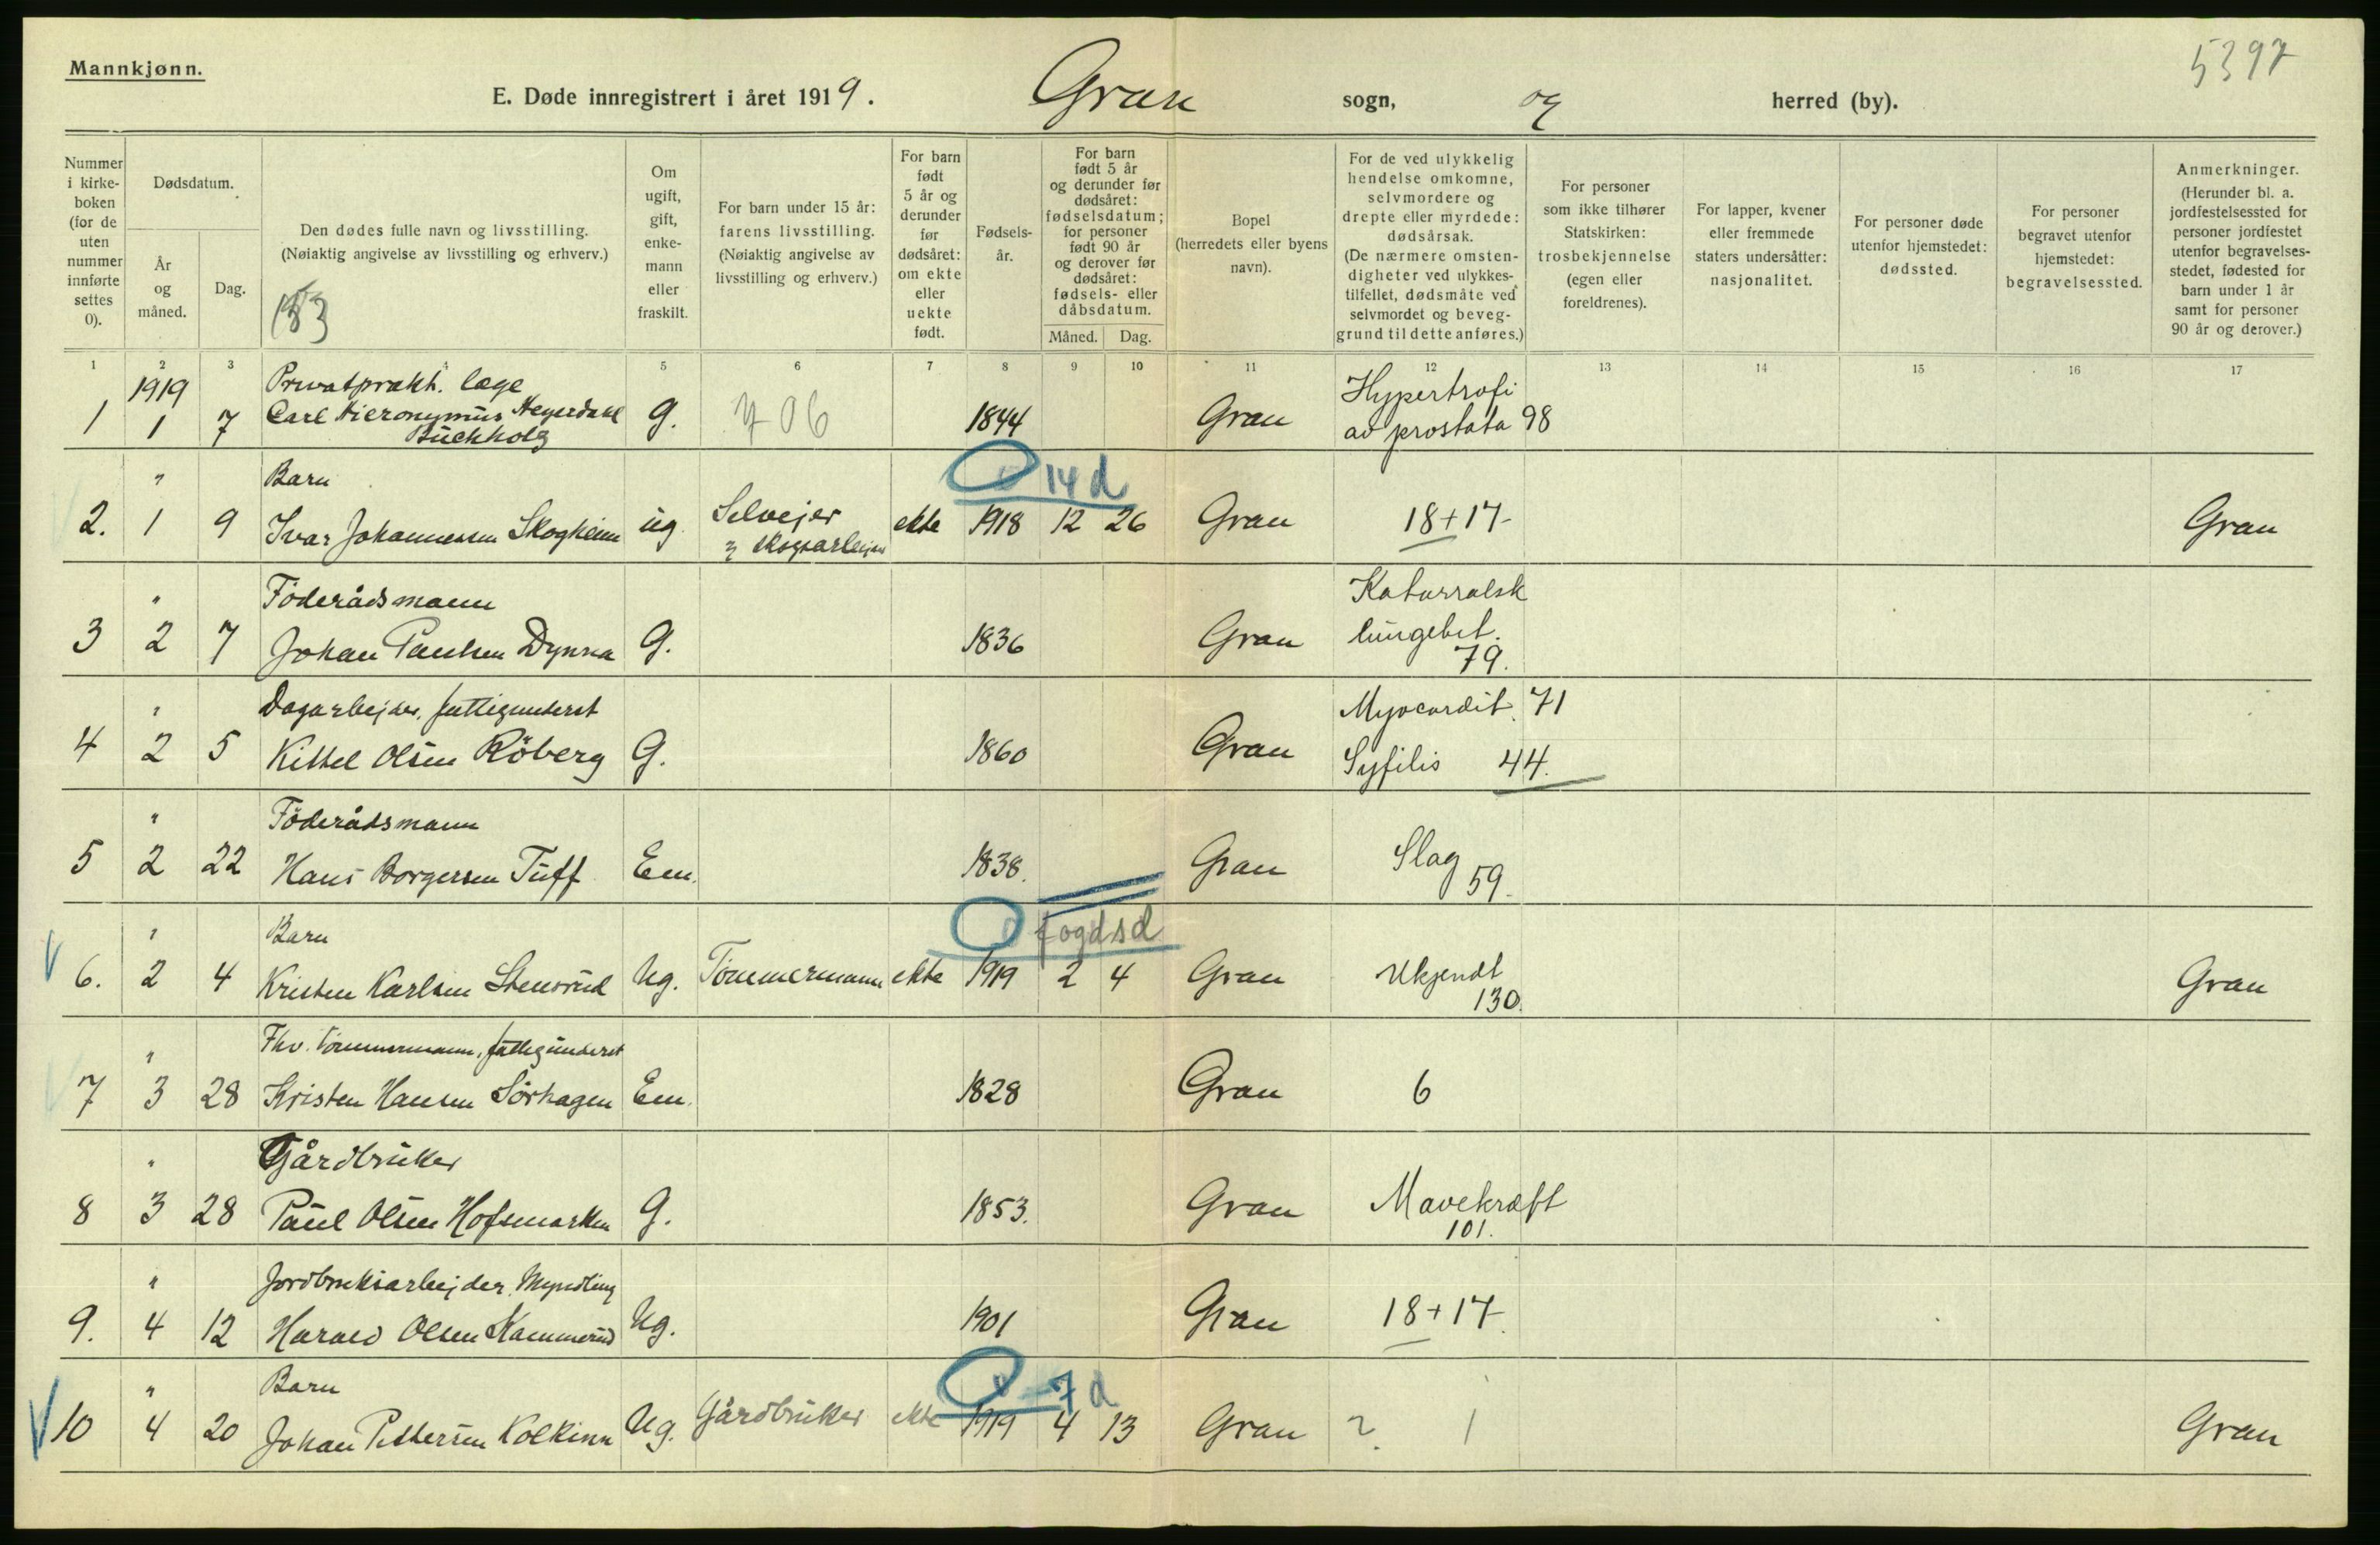 Mannkjønn.
5397
E. Døde innregistrert i året 1919. Gran sogn, og herred (by).
Nummer i kirkeboken (for de uten nummer innførte settes 0).
Dødsdatum.
År og måned.
Dag.
Den dødes fulle navn og livsstilling.
(Nøiaktig angivelse av livsstilling og erhverv.)
Om ugift, gift, enkemann eller fraskilt.
For barn under 15 år: farens livsstilling.
(Nøiaktig angivelse av livsstilling og erhverv.)
For barn født 5 år og derunder før dødsåret: om ekte eller uekte født.
Fødselsår.
For barn født 5 år og derunder før dødsåret: fødselsdatum; for personer født 90 år og derover før dødsåret: fødsels- eller dåbsdatum.
Måned. Dag.
Bopel (herredets eller byens navn).
For de ved ulykkelig hendelse omkomne, selvmordere og drepte eller myrdede: dødsårsak.
(De nærmere omstendigheter ved ulykkestilfellet, dødsmåte ved selvmordet og beveggrund til dette anføres.)
For personer som ikke tilhører Statskirken: trosbekjennelse (egen eller foreldrenes).
For lapper, kvener eller fremmede staters undersåtter: nasjonalitet.
For personer døde utenfor hjemstedet: dødssted.
For personer begravet utenfor hjemstedet: begravelsessted.
Anmerkninger.
(Herunder bl. a. jordfestelsessted for personer jordfestet utenfor begravelsesstedet, fødested for barn under 1 år samt for personer 90 år og derover.)
1 2 3 4 5 6 7 8 9 10 11 12 13 14 15 16 17
1919 Privatprakt. læge Hypertrofi
1 1 7 Carl Hieronymus Heyerdahl G. 706 1844 Gran av prostata 98
Buchholz
" Barn 14 d
2. 1 9 Ivar Johannessen Skogheim ug. Selvejer ekte 1918 12 26 Gran 18+17 Gran
og skogsarbejder
" Föderådsmann Katarralsk
3 2 7 Johan Paulsen Dynna G. 1836 Gran lungebet.
79.
" Dagarbejder, fattigunderst Myocardit. 71
4 2 5 Kittel Olsen Röberg G. 1860 Gran Syfilis 44.
" Föderådsmann
5 2 22 Hans Borgersen Tuff Em. 1838. Gran Slag 59.
" Barn f og d s d
6. 2 4 Kristen Karlsen Stensrud Ug. Tømmermann ekte 1919 2 4 Gran Ukjendt Gran
130.
" Fhv. tömmermann, fattigunderst
7 3 28 Kristen Hansen Sörhagen Em. 1828 Gran 6
" Gårdbruker
8 3 28 Paul Olsen Hofsmarken G. 1853. Gran Mavekræft
101.
" Jordbruksarbejder, Myndling
9. 4 12 Harald Olsen Kammerud Ug. 1901 Gran 18+17
" Barn 7 d
10 4 20 Johan Pettersen Kolkinn Ug. Gårdbruker ekte 1919 4 13 Gran ? 1 Gran